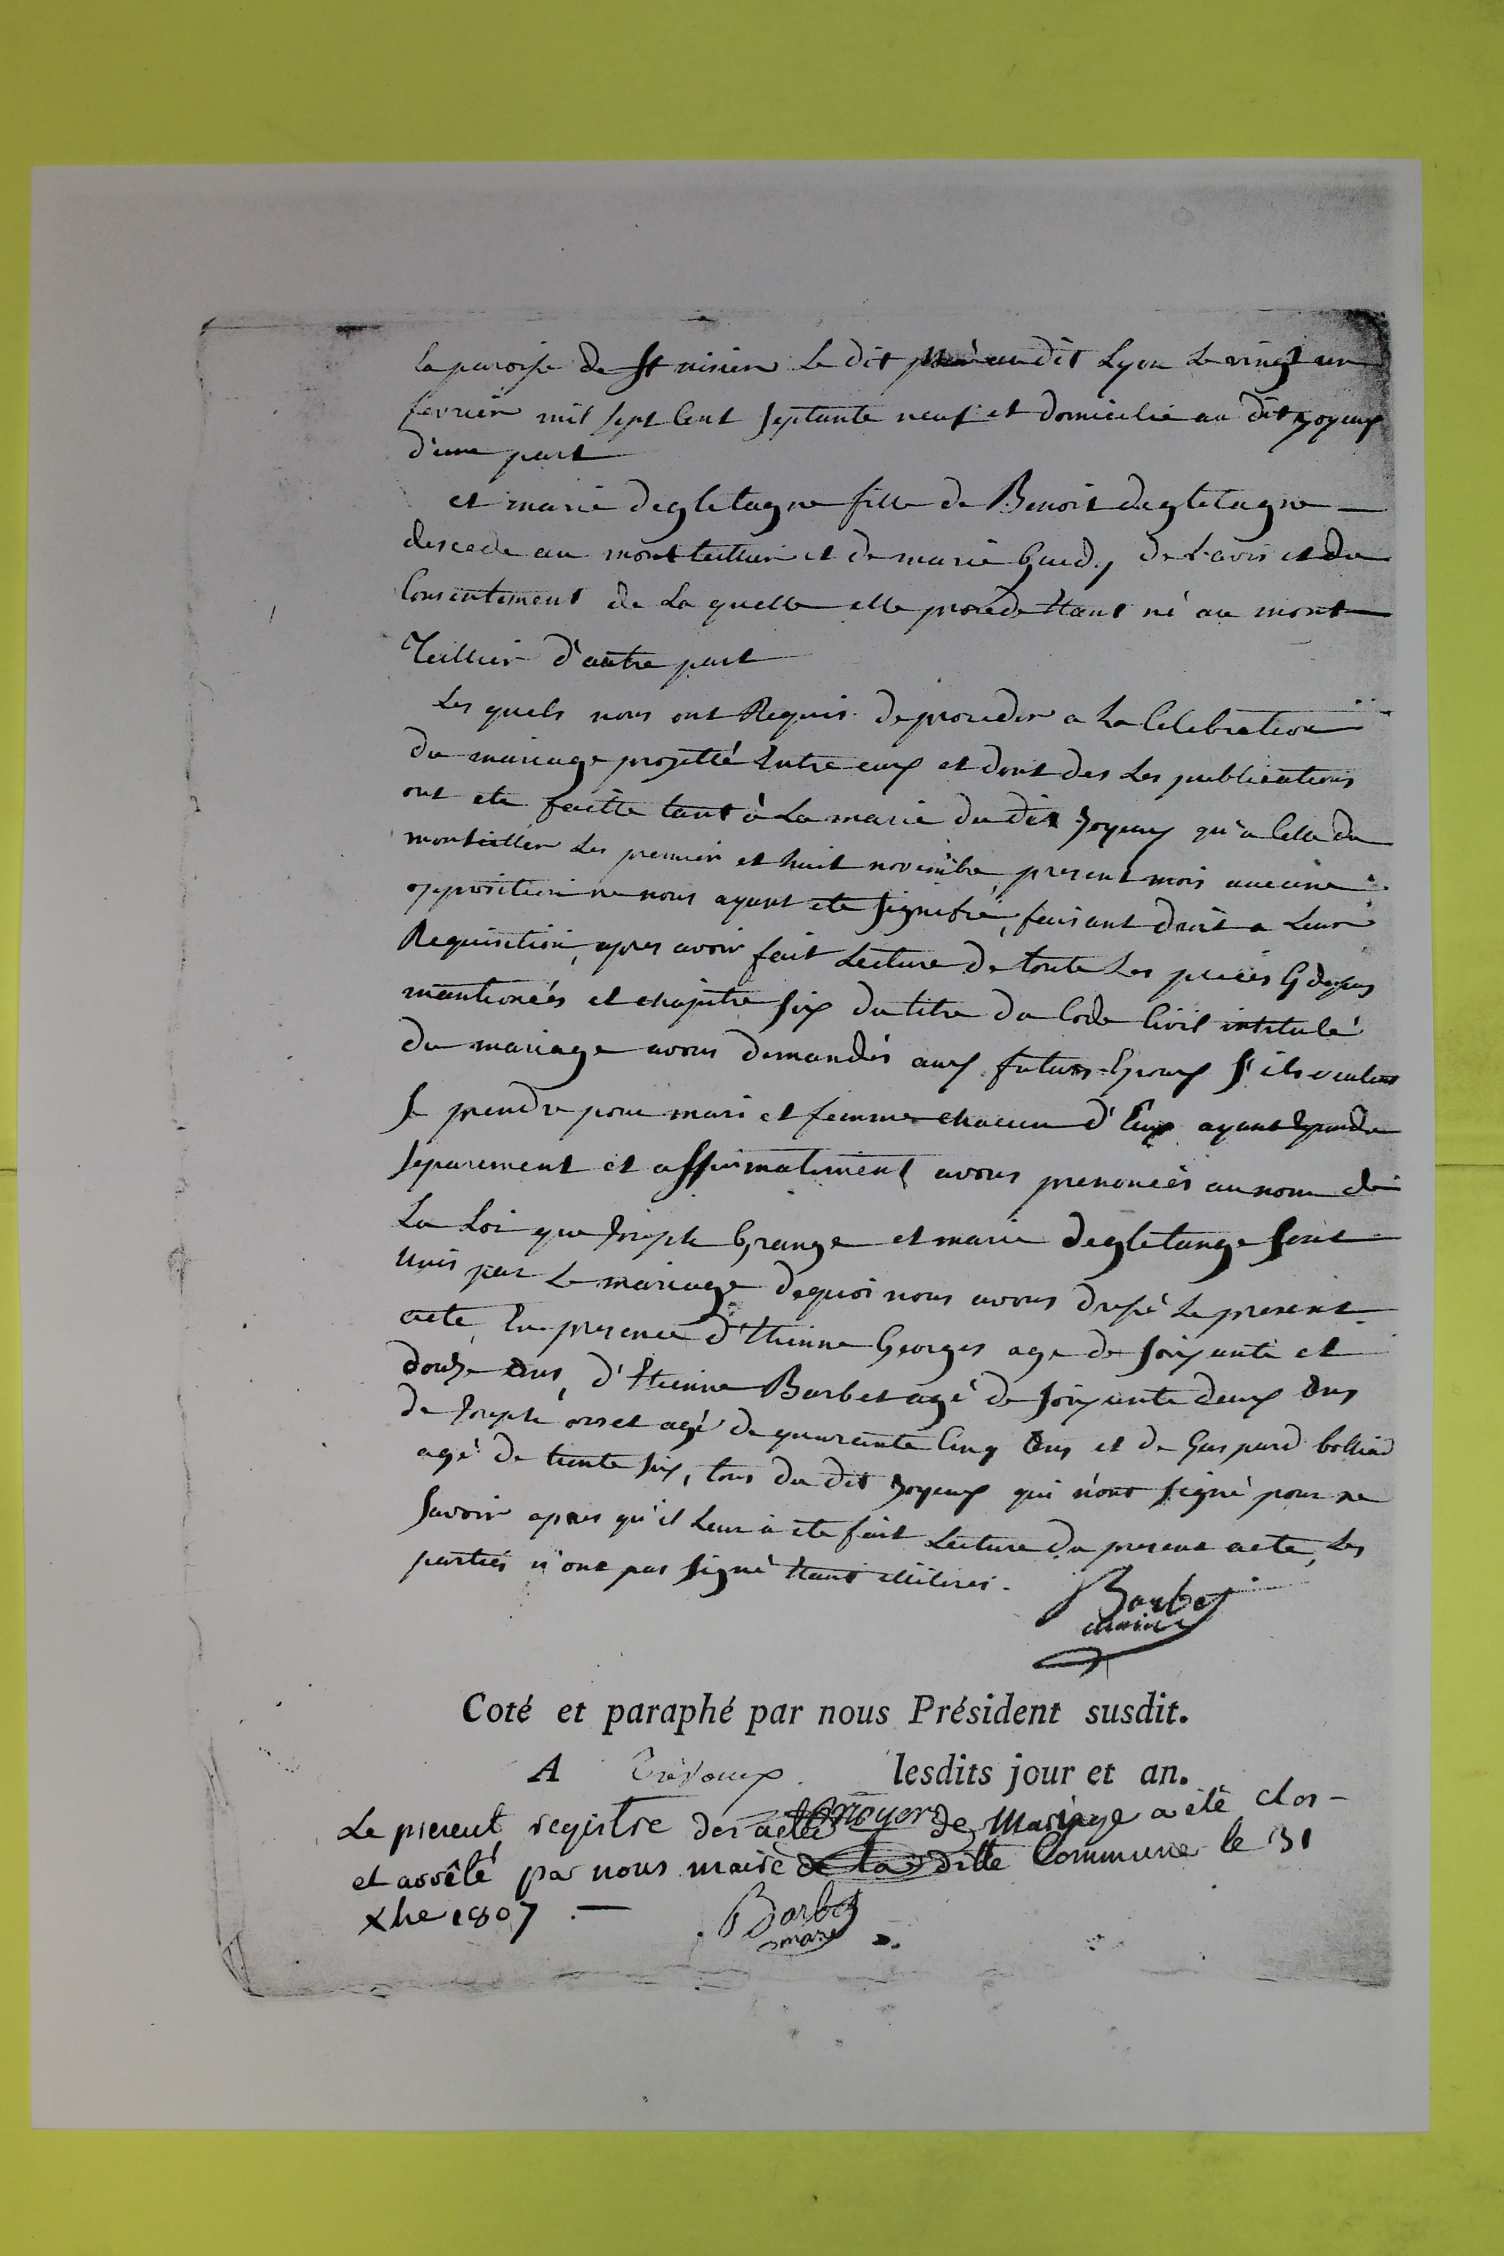 la paroisse de St nisier Le dit né au dit Lyon Le vingt un
fevrier mil sept Cent septante neuf et domicilié au dit joyeux
d'une part
et marie degletagne fille de Benoit degletagne
descede au montteillier et de marie Guedy de L'avis et du
Consentement de La quelle elle procede Etant né au mont
Teillier d'autre part
Les quels nous ont Requis de proceder a La Celebration
du mariage projetté Entre eux et dont des Les publications
ont ete faitte tant à La marie du dit Joyeux qu'a Celle du
monteillier Les premier et huit novembre present mois aucune
opposition ne nous ayant ete signifié, faisant droit a Leur
Requisition, apres avoir fait Lecture de toute Les pieces Cy dessus
mentionées et chapitre six du titre du Code Civil intitulé
du mariage avons demandés aux futurs Epoux s'ils veulent
se prendre pour mari et femme chacun d'Eux ayant Repondu
separement et affirmativement avons prenoncés au nom de
La Loi que Joseph Grange et marie degletange sont
unis par Le mariage de quoi nous avons dressé Le present
acte, En presence d'Etienne Georges age de soixante et
douze Ans, d'Etienne Barbet agé de soixante deux Ans
de Joseph orset agé de quarante Cinq Ans et de Gaspard
agé de trente six, tous du dit Joyeux qui n'ont signé pour ne
savoir apres qu'il Leur à ete fait Lecture du present acte, Les
parties n'ont pas signé Etant illiteres.
Barbet
maire
Coté et paraphé par nous Président susdit.
A Trévoux lesdits jour et an.
Le present registre des actes de Mariage a été clos
et arrêté par nous maire de la ditte Commune le 31
xbre 1807
Barbet
maire